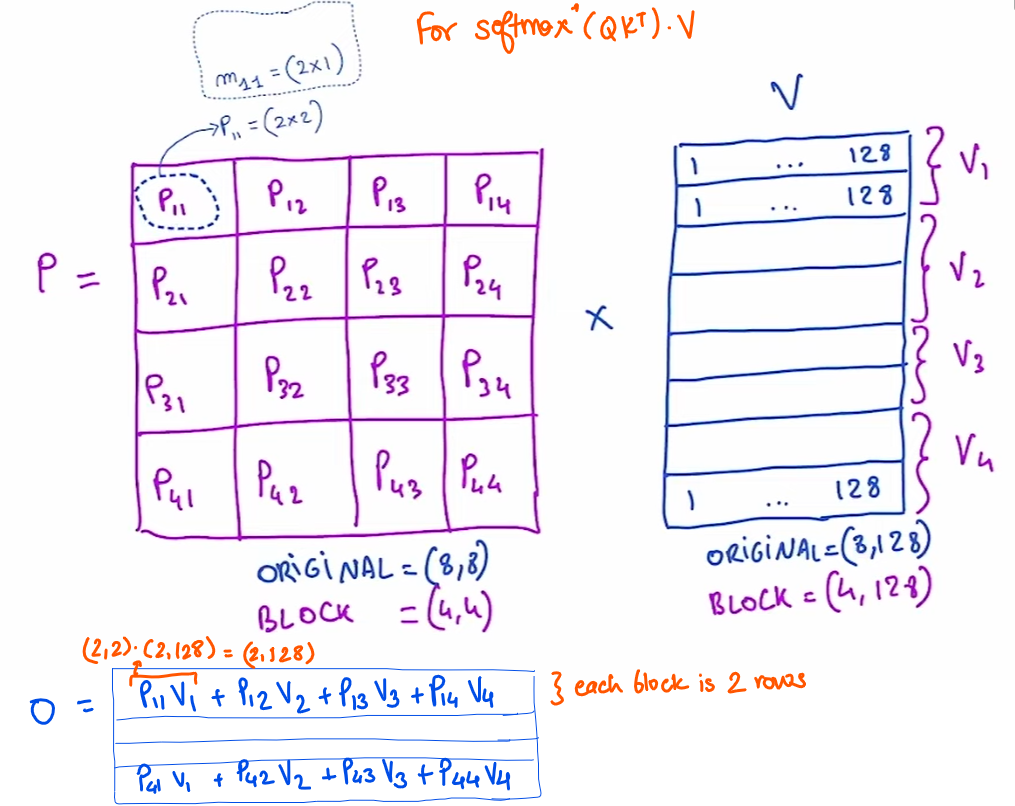 For softmax*(QKᵀ).V
m₁₁ = (2x1)
P₁₁ = (2x2)
V
P =
P₁₁ P₁₂ P₁₃ P₁₄
P₂₁ P₂₂ P₂₃ P₂₄
P₃₁ P₃₂ P₃₃ P₃₄
P₄₁ P₄₂ P₄₃ P₄₄
x
1 ... 128
1 ... 128
1 ... 128
V₁
V₂
V₃
V₄
ORIGINAL = (8,8)
BLOCK = (4,4)
ORIGINAL = (8,128)
BLOCK = (4,128)
(2,2).(2,128) = (2,128)
O =
P₁₁ V₁ + P₁₂ V₂ + P₁₃ V₃ + P₁₄ V₄
P₄₁ V₁ + P₄₂ V₂ + P₄₃ V₃ + P₄₄ V₄
} each block is 2 rows